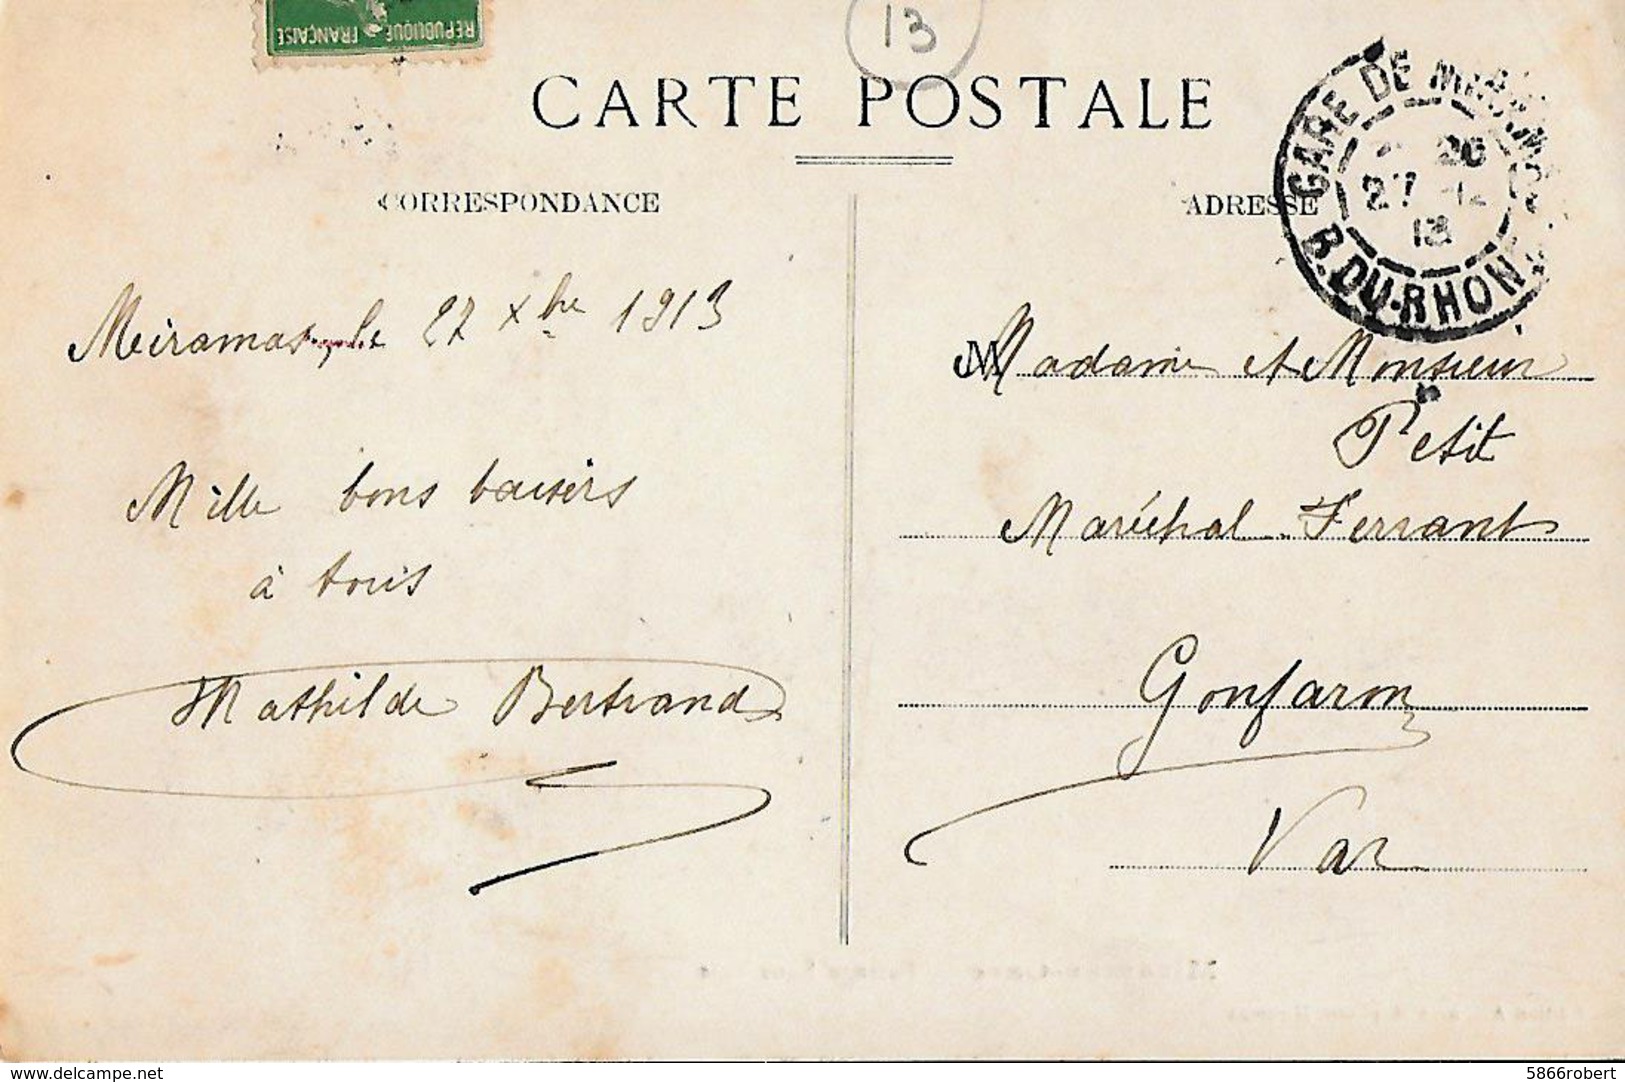 REPUBLIQUE FRANÇAISE
13
CARTE POSTALE
CORRESPONDANCE
ADRESSE
GARE DE MIRAMAS
26
27 12
13
B. DU-RHONE
Miramas, le 27 xbre 1913
Mille bons baisers
à tous
Mathilde Bertrand
Madame et Monsieur
Petit
Maréchal-Ferrant
Gonfaron
Var
www.delcampe.net
5866robert